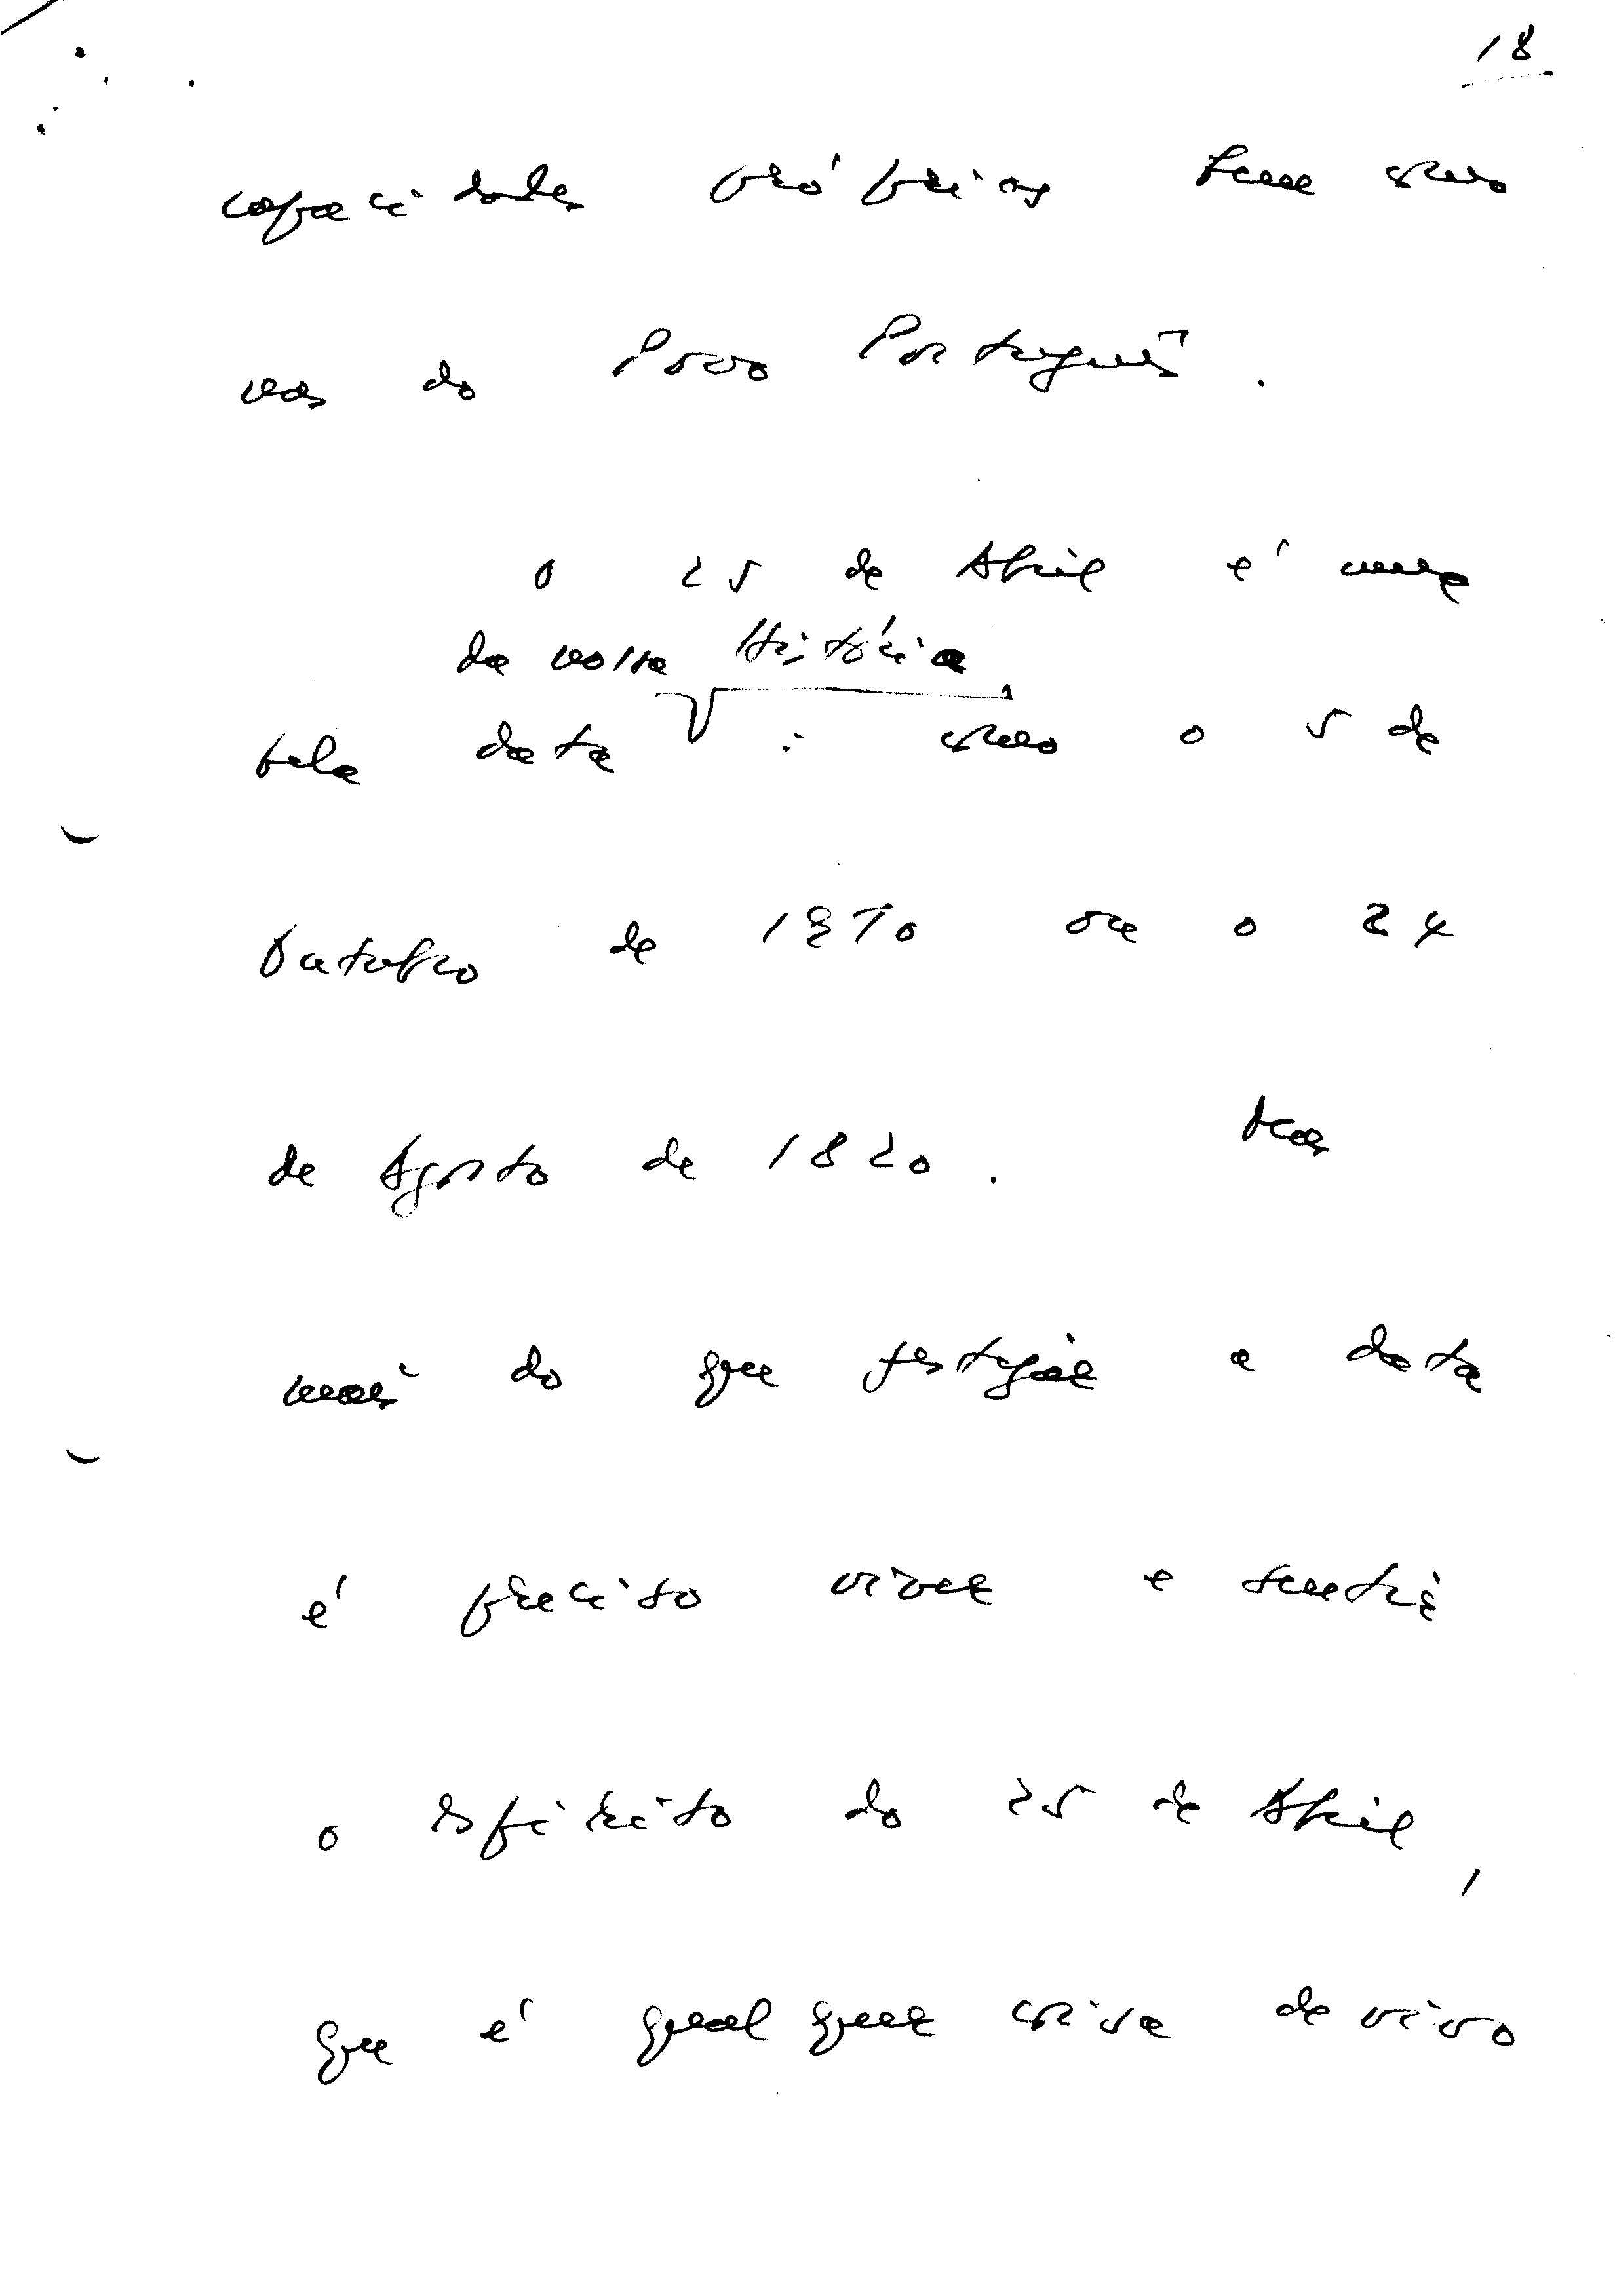 18
capacidades próprias bem como
nas do Povo Português.
O 25 de Abril é uma
da nossa História,
bela data : como o 5 de
Outubro de 1910 ou o 24
de Agosto de 1820. Mas
mais do que festejar a data
é preciso viver e sentir
o espírito do 25 de Abril,
que é qualquer coisa de vivo